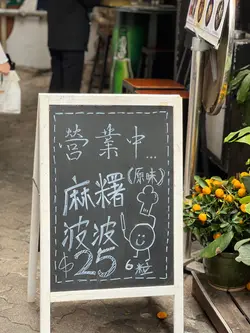 營業中...
(原味)
麻糬
波波
$25 6粒